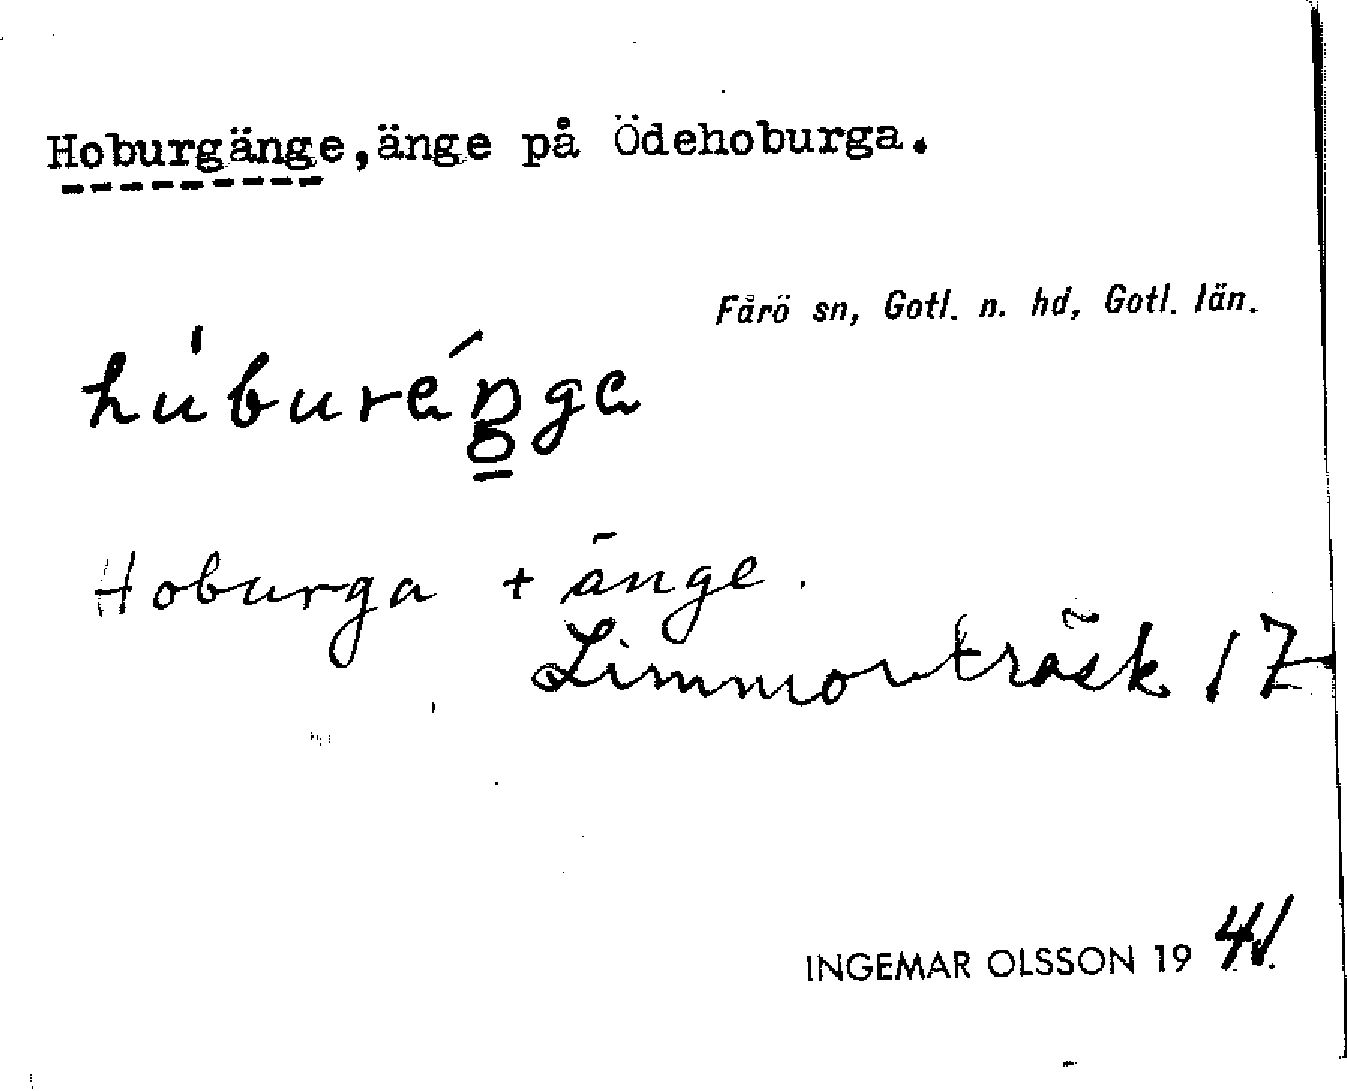 Hoburgänge,änge på Ödehoburga.
Fårö sn, Gotl. n. hd, Gotl. län.
Hoburga + änge.
Limmorträsk 17
INGEMAR OLSSON 19 41.